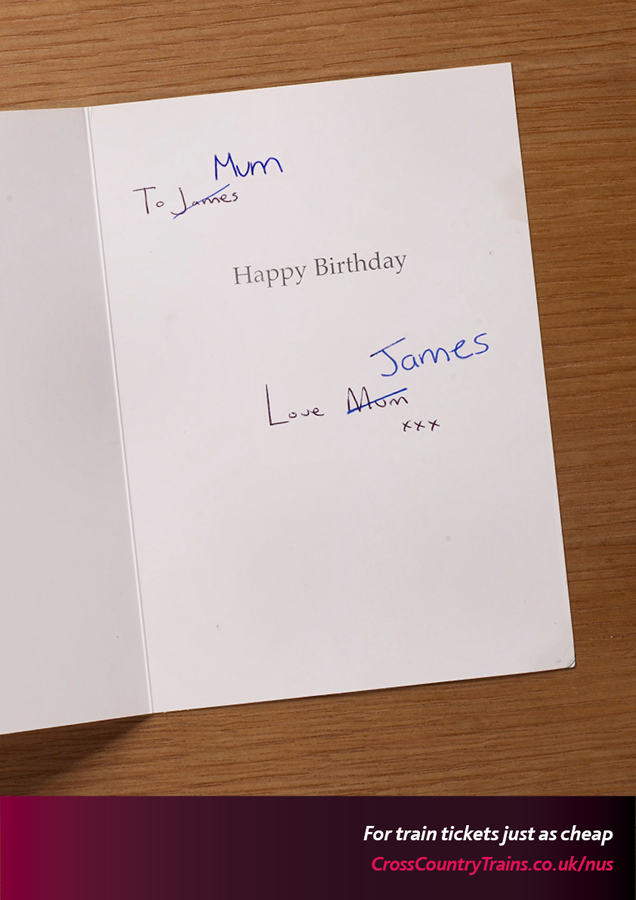 Mum
To James
Happy Birthday
James
Love Mum
xxx
For train tickets just as cheap
CrossCountryTrains.co.uk/nus